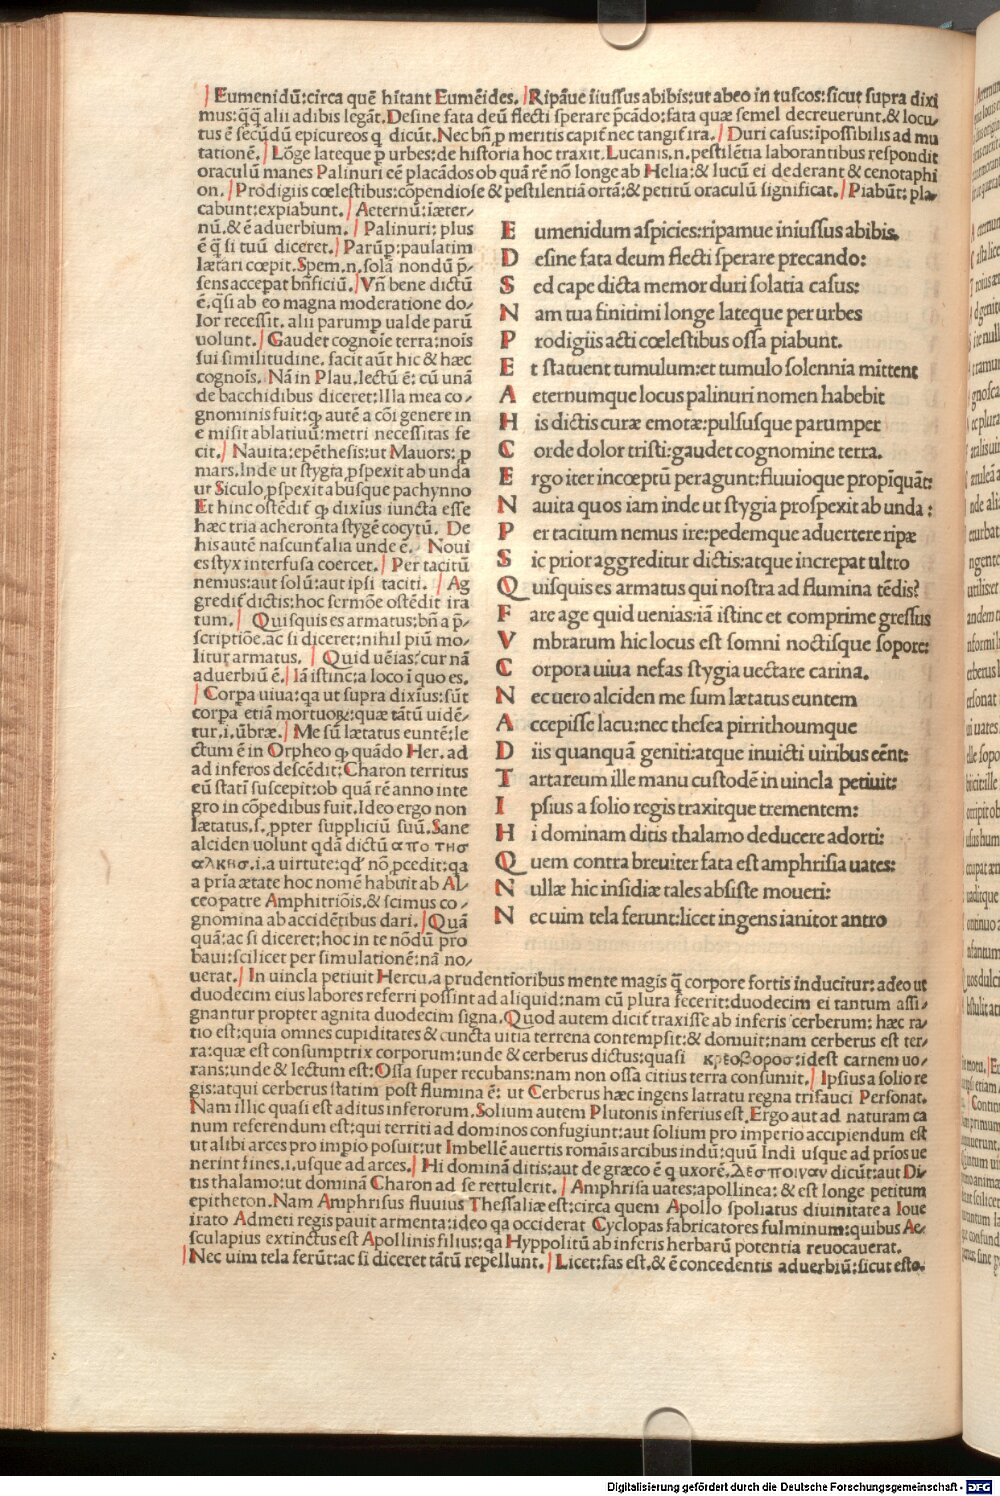 Eumenidū:circa quē hītant Eumēides. Ripāue īiussus abibis:ut abeo in tuscos:sicut supra dixi
mus:q̄q̄ alii adibis legāt. Desine fata deū flecti sperare p̄cādo:fata quæ semel decreuerunt.& locu/
tus ē secūdū epicureos q dicūt. Nec bn̄ p meritis capit̄ nec tangit̄ ira. Duri casus:īpossibilis ad mu
tationē. Lōge lateque p urbes:de historia hoc traxit. Lucanis.n.pestilētia laborantibus respondit
oraculū manes Palinuri eē placādos ob quā rē nō longe ab Helia:& lucū ei dederant & cenotaphi
on. Prodigiis cœlestibus:cōpendiose & pestilentiā ortā:& petitū oraculū significat. Piabūt: pla/
cabunt:expiabunt. Aeternū:iæter/
nū.& ē aduerbium. Palinuri: plus
ē q̄ si tuū diceret. Parūp:paulatim
lætari cœpit. Spem.n.solā nondū p̄/
sens accepat bn̄ficiū. Vn̄ bene dictū
ē.q̄si ab eo magna moderatione do/
lor recessit. alii parump ualde parū
uolunt. Gaudet cognoīe terra:nois
sui similitudine. facit aūt hic & hæc
cognoīs. Nā in Plau.lectū ē: cū unā
de bacchidibus diceret:Illa mea co/
gnominis fuit:q autē a cōi genere in
e misit ablatiuū:metri necessitas fe
cit. Nauita:epēthesis:ut Mauors: p
mars. Inde ut stygia pspexit ab unda
ut Siculo pspexit abusque pachynno
Et hinc ostēdit q dixius iuncta esse
hæc tria acheronta stygē cocytū. De
his autē nascunt̄ alia unde ē. Noui
es styx interfusa coercet. Per tacitū
nemus:aut solū:aut ipsi taciti. Ag
gredit̄ dictis:hoc sermōe ostēdit ira
tum. Quisquis es armatus:bn̄ a p̄/
scriptiōe.ac si diceret:nihil piū mo/
litur armatus. Quid uēias:cur nā
aduerbiū ē. Iā istīc:a loco ī quo es.
Corpa uiua:qa ut supra dixīus:sūt
corpa etiā mortuoꝝ:quæ tātū uidē/
tur.i.ūbræ. Me sū lætatus euntē:le
ctum ē in Orpheo q quādo Her. ad
ad inferos descēdit:Charon territus
eū statī suscepit:ob quā rē anno inte
gro in cōpedibus fuit. Ideo ergo non
lætatus.s.ppter suppliciū suū. Sane
alciden uolunt qdā dictū απο τησ
αλκησ.i.a uirtute:qd̄ nō pcedit:qa
a pria ætate hoc nomē habuit ab Al
ceo patre Amphitriōis.& scimus co/
gnomina ab accidētibus dari. Quā
quā:ac si diceret:hoc in te nōdū pro
baui:scilicet per simulationē:nā no/
uerat. In uincla petiuit Hercu.a prudentioribus mente magis q̄ corpore fortis inducitur: adeo ut
duodecim eius labores referri possint ad aliquid:nam cū plura fecerit:duodecim ei tantum assi/
gnantur propter agnita duodecim signa. Quod autem dicit̄ traxisse ab inferis cerberum: hæc ra/
tio est:quia omnes cupiditates & cuncta uitia terrena contempsit:& domuit:nam cerberus est ter/
ra:quæ est consumptrix corporum:unde & cerberus dictus:quasi κρεοβοροσ:idest carnem uo/
rans:unde & lectum est:Ossa super recubans:nam non ossa citius terra consumit. Ipsius a solio re
gis:atqui cerberus statim post flumina ē: ut Cerberus hæc ingens latratu regna trifauci Personat.
Nam illic quasi est aditus inferorum. Solium autem Plutonis inferius est. Ergo aut ad naturam ca
num referendum est:qui territi ad dominos confugiunt:aut solium pro imperio accipiendum est
ut alibi arces pro impio posuit:ut Imbellē auertis romāis arcibus indū:quū Indi usque ad prios ue
nerint fines.i.usque ad arces. Hi dominā ditis:aut de græco ē q uxorē.Δεσποιναν dicūt:aut Di/
tis thalamo:ut dominā Charon ad se rettulerit. Amphrisa uates:apollinea: & est longe petitum
epitheton. Nam Amphrisus fluuius Thessaliæ est:circa quem Apollo spoliatus diuinitate a Ioue
irato Admeti regis pauit armenta:ideo qa occiderat Cyclopas fabricatores fulminum:quibus Ae/
sculapius extinctus est Apollinis filius:qa Hyppolitū ab inferis herbarū potentia reuocauerat.
Nec uim tela ferūt:ac si diceret tātū repellunt. Licet:fas est.& ē concedentis aduerbiū:sicut esto.
E umenidum aspicies:ripamue iniussus abibis.
D esine fata deum flecti sperare precando:
S ed cape dicta memor duri solatia casus:
N am tua finitimi longe lateque per urbes
P rodigiis acti cœlestibus ossa piabunt.
E t statuent tumulum:et tumulo solennia mittent
A eternumque locus palinuri nomen habebit
H is dictis curæ emotæ:pulsusque parumper
C orde dolor tristi:gaudet cognomine terra.
E rgo iter incœptū peragunt:fluuioque propīquāt:
N auita quos iam inde ut stygia prospexit ab unda:
P er tacitum nemus ire:pedemque aduertere ripæ
S ic prior aggreditur dictis:atque increpat ultro
Q uisquis es armatus qui nostra ad flumina tēdis?
F are age quid uenias:iā istinc et comprime gressus
V mbrarum hic locus est somni noctisque sopore:
C orpora uiua nefas stygia uectare carina.
N ec uero alciden me sum lætatus euntem
A ccepisse lacu:nec thesea pirrithoumque
D iis quanquā geniti:atque inuicti uiribus eēnt:
T artareum ille manu custodē in uincla petiuit:
I psius a solio regis traxitque trementem:
H i dominam ditis thalamo deducere adorti:
Q uem contra breuiter fata est amphrisia uates:
N ullæ hic insidiæ tales absiste moueri:
N ec uim tela ferunt:licet ingens ianitor antro
Digitalisierung gefördert durch die Deutsche Forschungsgemeinschaft - DFG